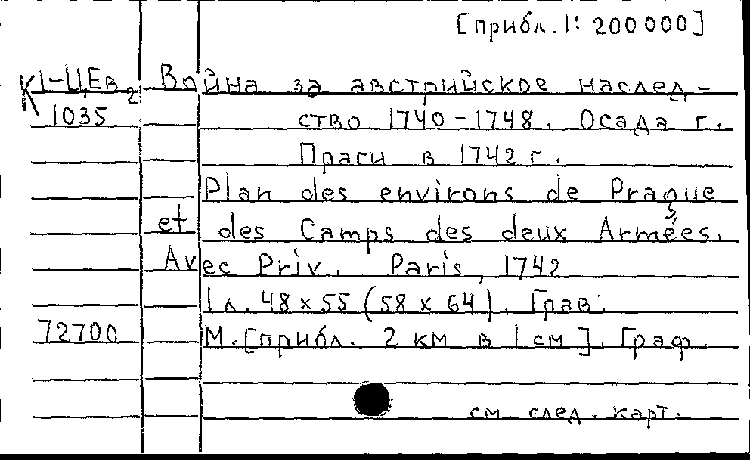 [прибл. 1: 200 000]
К 1-ЦЕв 2 Война за австрийское наслед-
1035 ство 1740-1748. Осада г.
Праги в 1742 г.
Plan des environs de Prague
et des Camps des deux Armées.
Avec Priv. Paris, 1742
1 л. 48 x 55 (58 x 64). Грав.
72700 М. [прибл. 2 км в 1 см]. Граф.
см след. карт.